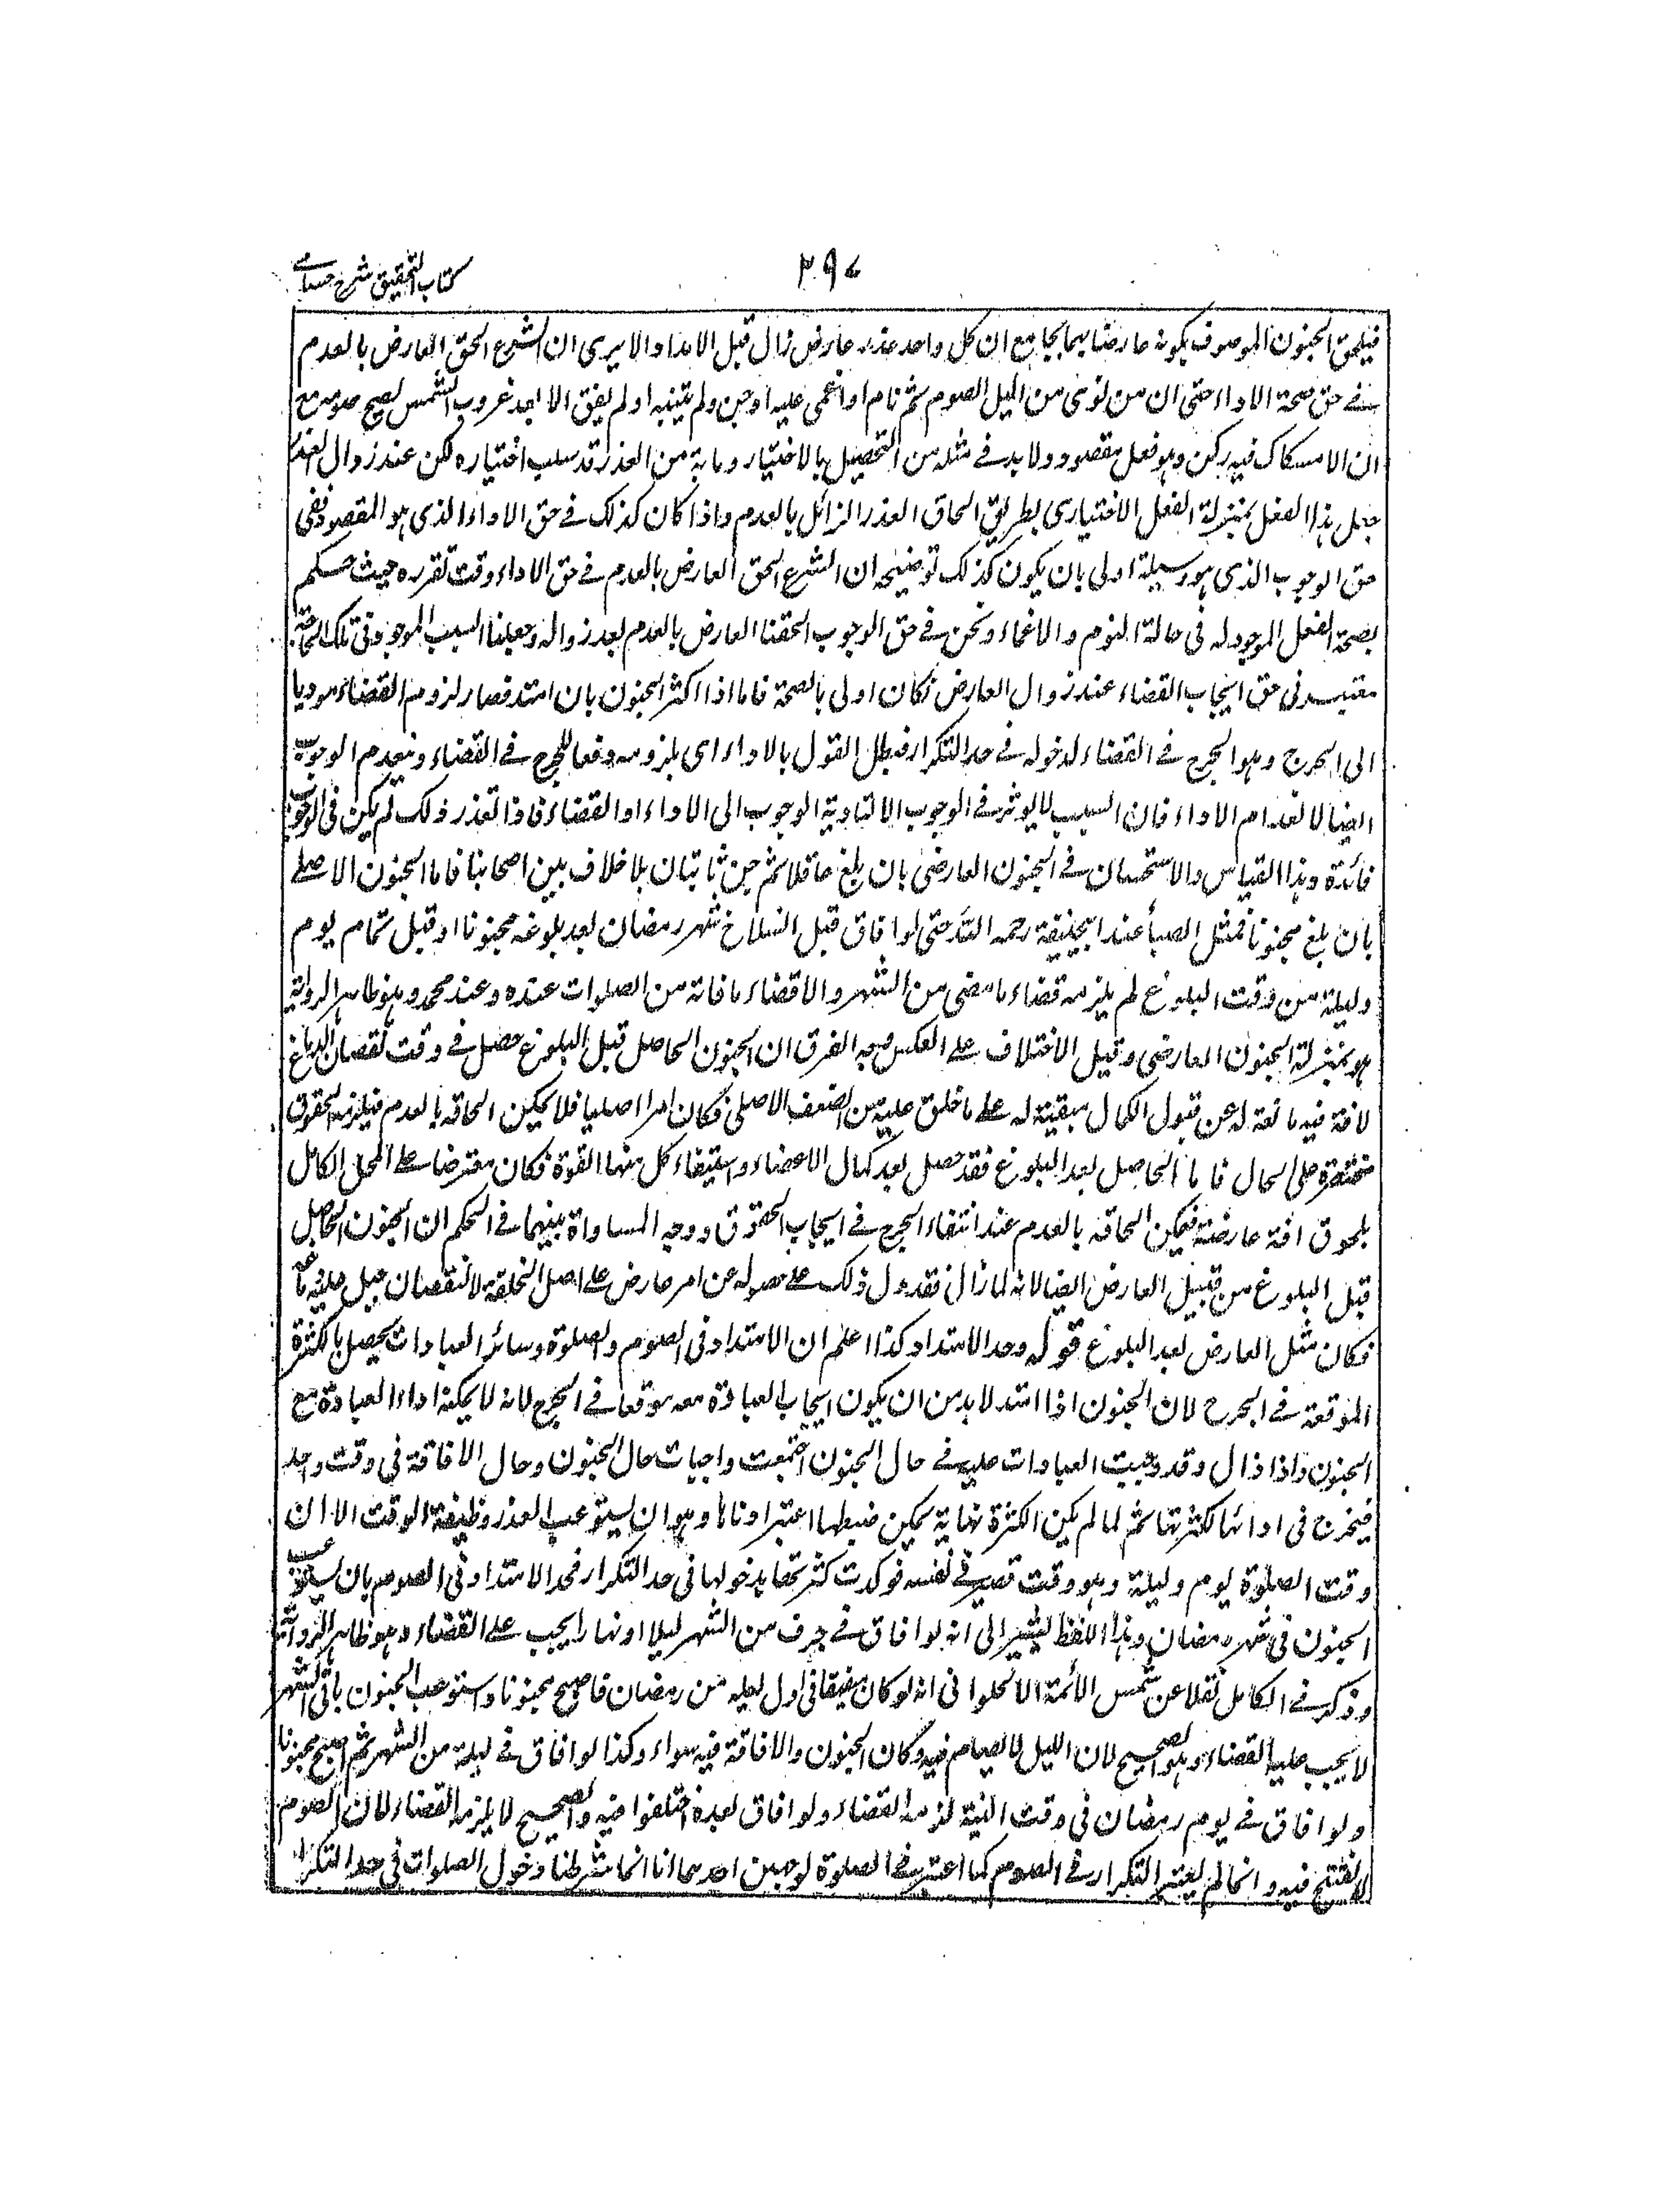 كتاب التحقيق شرح حسامے
٢٩٧
فيلحق الجنون الموصوف بكونه عارضا بهما بجامع ان كل واحد عذر عارض زال قبل الامتداد الا يرى ان الشرع الحق العارض بالعدم
فے حق صحة الاداء حتى ان من نوى من الليل الصوم ثم نام او اغمى عليه او جن ولم ينتبه او لم يفق الا بعد غروب الشمس لصح صومه مع
ان الامساك فيه ركن وهو فعل مقصود ولا بد فے مثله من التحصيل بالاختيار وما به من العذر قد سلب اختياره لكن عند زوال العذر
جعل هذا الفعل بمنزلة الفعل الاختيارى بطريق الحاق العذر الزائل بالعدم واذا كان كذلك فے حق الاداء الذى هو المقصود ففى
حق الوجوب الذى هو وسيلة اولى بان يكون كذلك توضيحه ان الشرع الحق العارض بالعدم فے حق الاداء وقت تقرره حيث حكم
بصحة الفعل الموجود له فى حالة النوم والاغماء ونحن فے حق الوجوب الحقنا العارض بالعدم بعد زواله وجعلنا السبب الموجود فى تلك الحالة
معتبرا فى حق ايجاب القضاء عند زوال العارض فكان اولى بالصحة فاما اذا اكثر الجنون بان امتد فصار لزوم القضاء موديا
الى الحرج وهو الحرج فے القضاء لدخوله فے حد التكرار فبطل القول بالاداء اى بلزومه دفعا للحرج فے القضاء وينعدم الوجوب
ايضا لانعدام الاداء فان السبب لا يوثر فے الوجوب الا لتادية الوجوب الى الاداء او القضاء فاذا تعذر ذلك لم يكن فى الوجوب
فائدة وهذا القياس والاستحسان فے الجنون العارضى بان بلغ عاقلا ثم جن ثابتان بلا خلاف بين اصحابنا فاما الجنون الاصلے
بان بلغ مجنونا فمثل الصبا عند ابيحنيفة رحمه الله حتى لو افاق قبل انسلاخ شهر رمضان بعد بلوغه مجنونا او قبل تمام يوم
وليلة من وقت البلوغ لم يلزمه قضاء ما مضى من الشهر والا قضاء ما فاته من الصلوات عنده وعند محمد وهو ظاهر الرواية
هو بمنزلة الجنون العارضى وقيل الاختلاف علے العكس وجه الفرق ان الجنون الحاصل قبل البلوغ حصل فے وقت نقصان الدماغ
لافة فيه مانعة له عن قبول الكمال مبقية له علے ما خلق عليه من الضعف الاصلى فكان امرا اصليا فلا يمكن الحاقه بالعدم فيلزمه الحقوق
مقتصرة على الحال فاما الحاصل بعد البلوغ فقد حصل بعد كمال الاعضاء واستيفاء كل منها القوة فكان معترضا علے المحل الكامل
بلحوق افة عارضة فيمكن الحاقه بالعدم عند انتفاء الحرج فے ايجاب الحقوق ووجه المساواة بينهما فے الحكم ان الجنون الحاصل
قبل البلوغ من قبيل العارض ايضا لانه لما زال فقد دل ذلك علے حصوله عن امر عارض علے اصل الخلقة لا لنقصان جبل عليه دماغه
فكان مثل العارض بعد البلوغ قوله وحد الامتداد كذا اعلم ان الامتداد فى الصوم والصلوة وسائر العبادات يحصل بالكثرة
الموقعة فے الحرج لان الجنون اذا امتد لا بد من ان يكون ايجاب العبادة معه موقعا فے الحرج لانه لا يمكنه اداء العبادة مع
الجنون واذا زال وقد وجبت العبادات عليه فے حال الجنون اجتمعت واجبات حال الجنون وحال الافاقة فى وقت واحد
فيحرج فى ادائها لكثرتها ثم لما لم يكن الكثرة نهاية يمكن ضبطها اعتبر ادناها وهو ان يستوعب العذر وظيفة الوقت الا ان
وقت الصلوة يوم وليلة وهو وقت قصير فے نفسه فوكدت كثرتها بدخولها فى حد التكرار فحد الامتداد فى الصوم بان يستوعب
الجنون فى شهر رمضان وهذا اللفظ يشير الى انه لو افاق فے جزء من الشهر ليلا او نهارا يجب علے القضاء وهو ظاهر الرواية
وذكر فے الكامل نقلا عن شمس الائمة الحلوانى انه لو كان مفيقا فى اول ليلة من رمضان فاصبح مجنونا واستوعب الجنون باقى الشهر
لا يجب عليه القضاء وهو الصحيح لان الليل لا يصام فيه وكان الجنون والافاقة فيه سواء وكذا لو افاق فے ليلة من الشهر ثم اصبح مجنونا
ولو افاق فے يوم رمضان فى وقت النية لزمه القضاء ولو افاق بعده اختلفوا فيه والصحيح لا يلزمه القضاء لان الصوم
لا يفتتح فيه وانما لم يعتبر التكرار فے الصوم كما اعتبر فے الصلوة لوجهين احدهما انا انما شرطنا دخول الصلوات فى حد التكرار